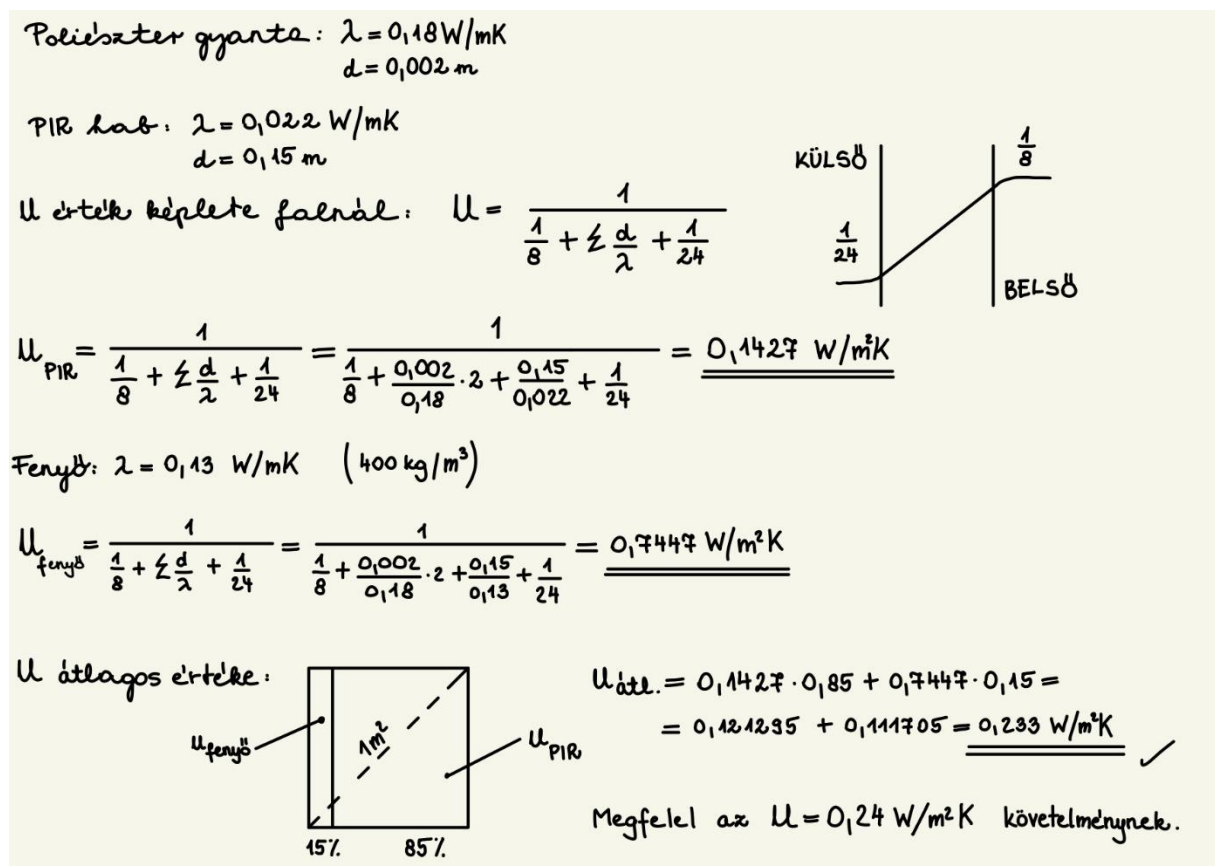 Poliészter gyanta: λ = 0,18 W/mK
d = 0,002 m
PIR hab: λ = 0,022 W/mK
d = 0,15 m
U érték képlete falnál: U = 1 / (1/8 + Σ d/λ + 1/24)
KÜLSŐ
1/8
1/24
BELSŐ
U_PIR = 1 / (1/8 + Σ d/λ + 1/24) = 1 / (1/8 + 0,002/0,18 · 2 + 0,15/0,022 + 1/24) = 0,1427 W/m²K
Fenyő: λ = 0,13 W/mK (400 kg/m³)
U_fenyő = 1 / (1/8 + Σ d/λ + 1/24) = 1 / (1/8 + 0,002/0,18 · 2 + 0,15/0,13 + 1/24) = 0,7447 W/m²K
U átlagos értéke:
U_fenyő
1m²
U_PIR
15% 85%
U átl. = 0,1427 · 0,85 + 0,7447 · 0,15 =
= 0,121295 + 0,111705 = 0,233 W/m²K ✓
Megfelel az U = 0,24 W/m²K követelménynek.